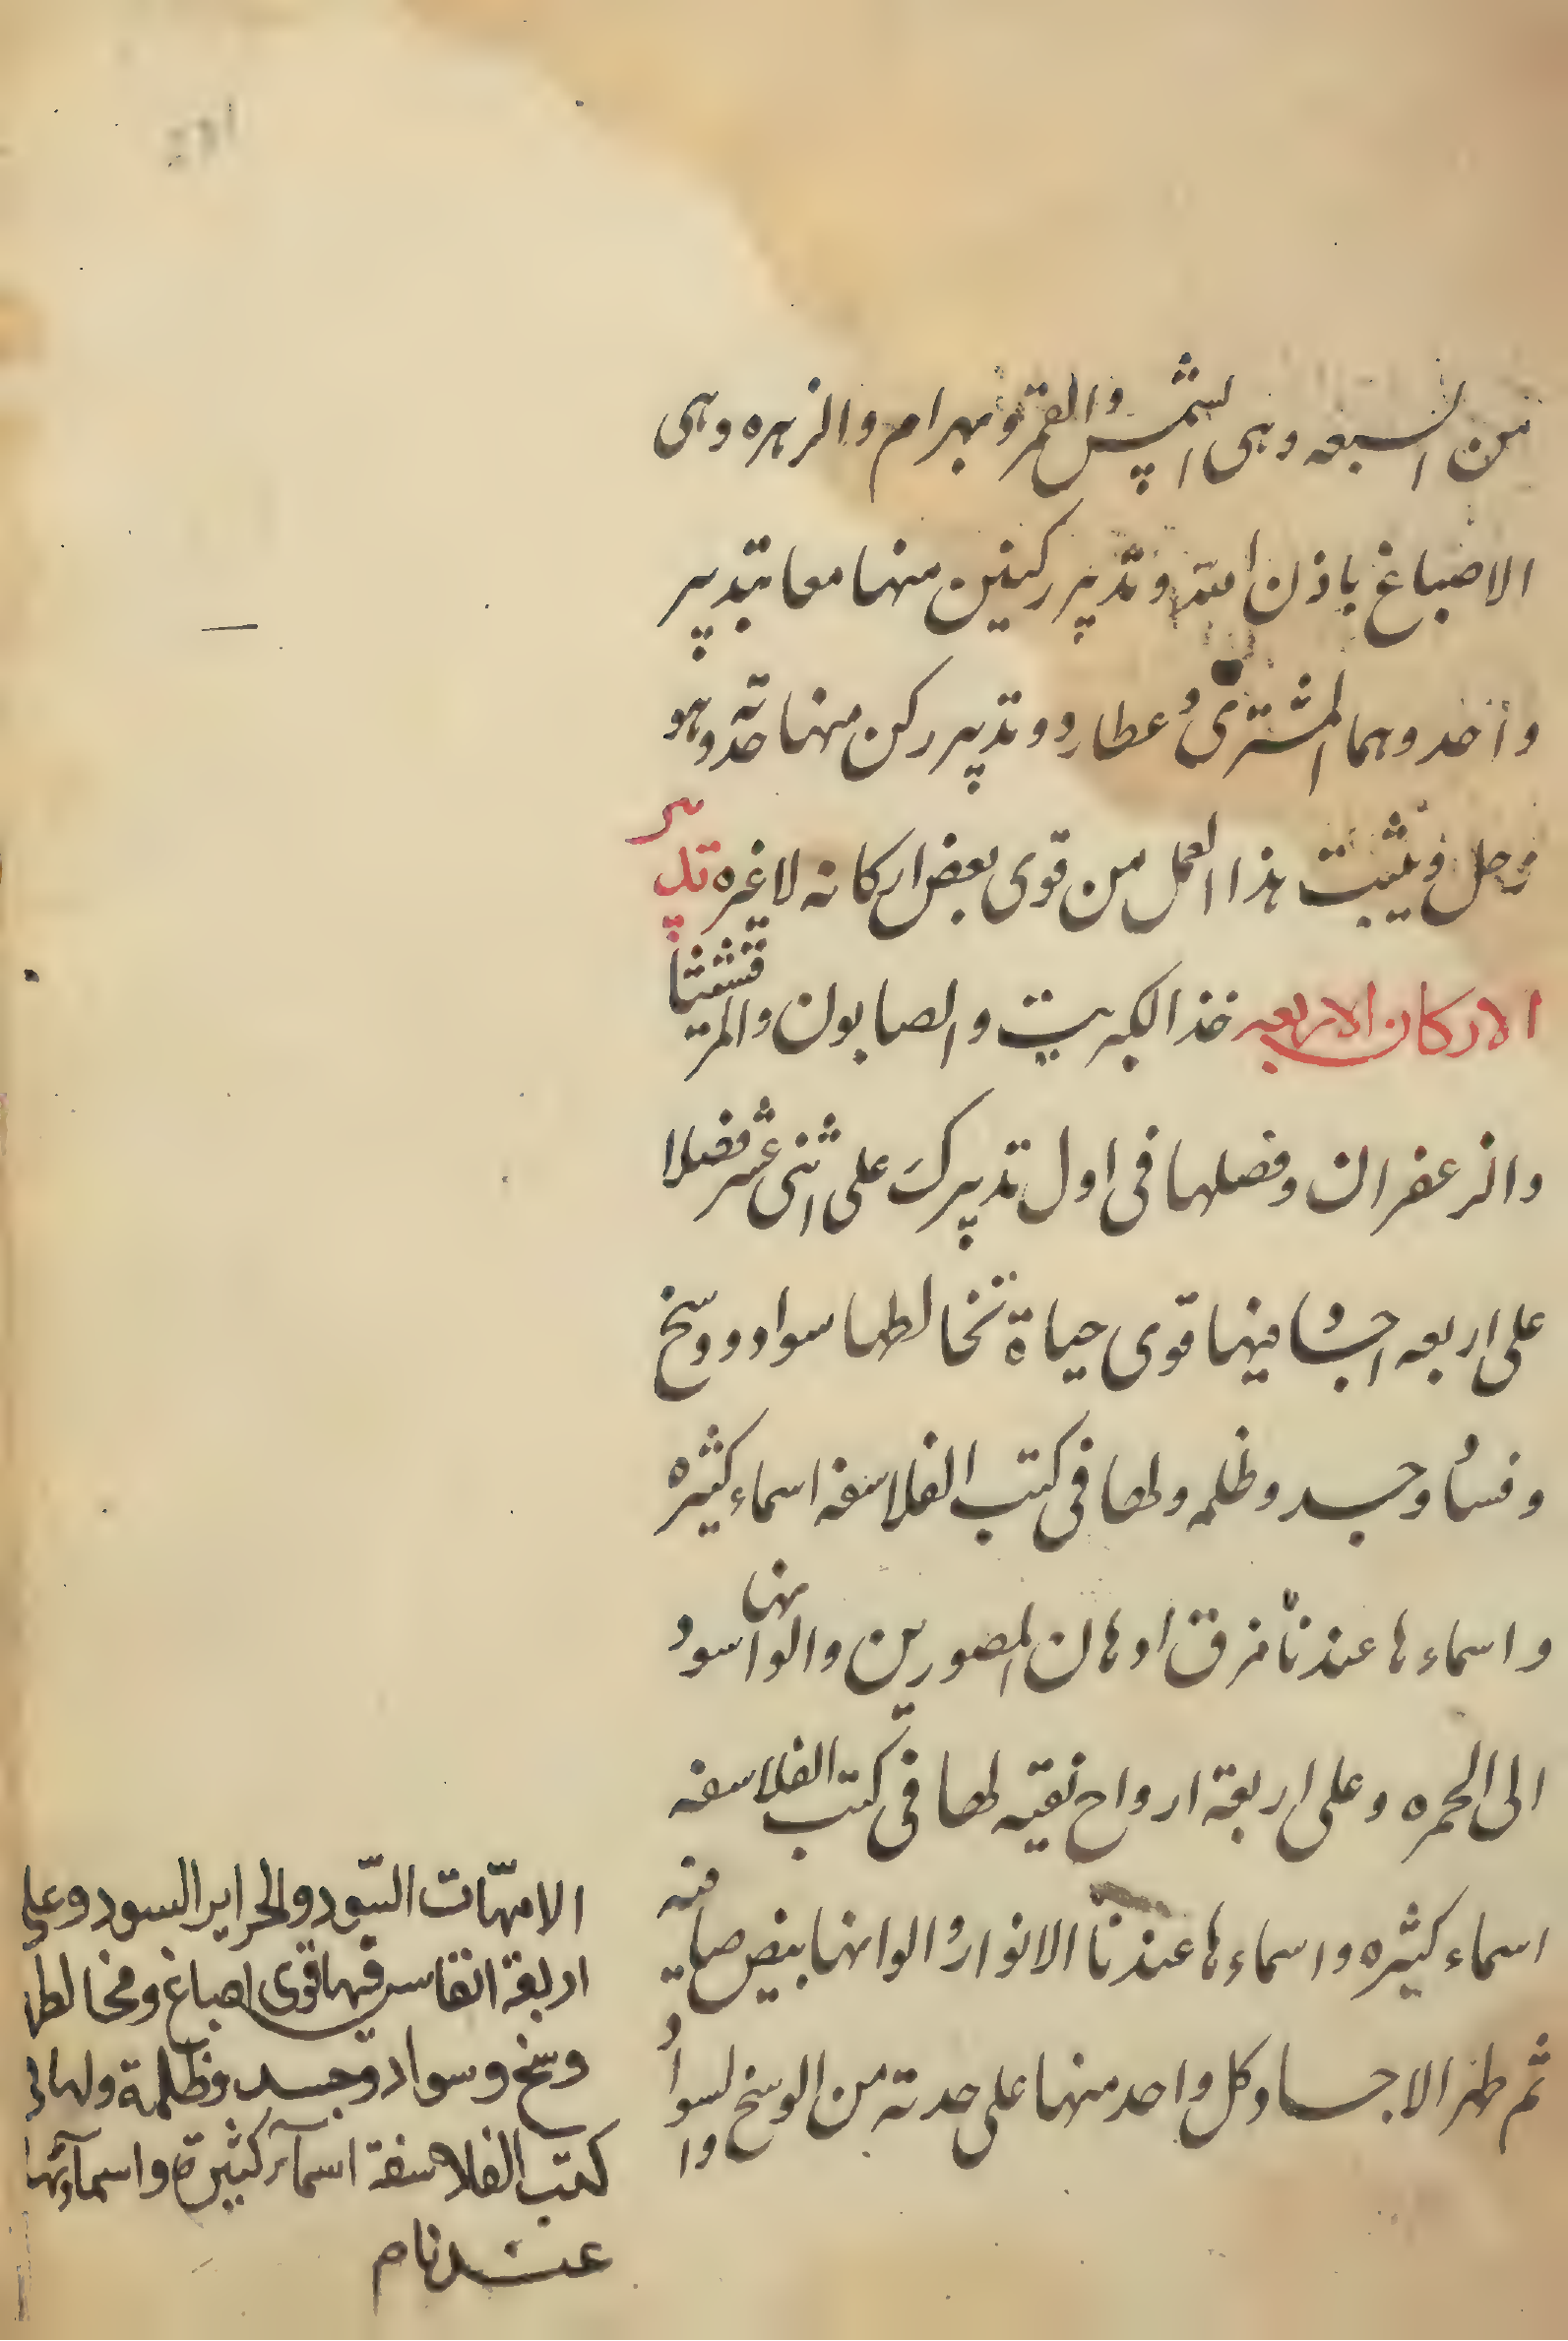 من السبعه وهى الشمس والقمر وبهرام والزهره وهى
الاصباغ باذن الله وتدبير ركنين منها معا بتدبير
واحد وهما المشترى وعطارد وتدبير ركن منها حدته وهو
زحل ويثبت هذا العمل من قوى بعض اركانه لا غيره تدبير
الاركان الاربعه خذ الكبريت والصابون والمرقشيثا
والزعفران وفصلها فى اول تدبيرك على اثنى عشر فصلا
على اربعه اجساد فيها قوى حياة تخالطها سواد ووسخ
وفساد وجسد وظلمه ولها فى كتب الفلاسفه اسماء كثيره
واسماءها عندنا مزق ادهان المصورين والوانها سود
الى الحمره وعلى اربعة ارواح نقيه لها فى كتب الفلاسفه
اسماء كثيره واسماءها عندنا الانوار والوانها بيض صافيه
ثم طهر الاجساد كل واحد منها على حدته من الوسخ والسواد
الامهّات السّود والحراير السود وعلى
اربعة انفاس فيها قوى اصباغ ومخالطها
وسخ وسواد وجسد وظلمة ولها فى
كتب الفلاسفة اسمآء كثيرة واسمآؤها
عندنا م